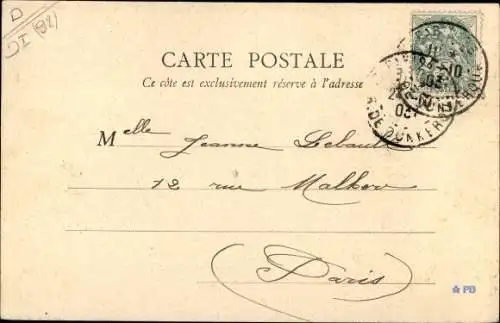 D
DI (92)
CARTE POSTALE
Ce côte est exclusivement réserve à l'adresse
Melle Jeanne Lebault
12 rue Malher
(Paris)
R. DE DUNKERQUE
03
PD